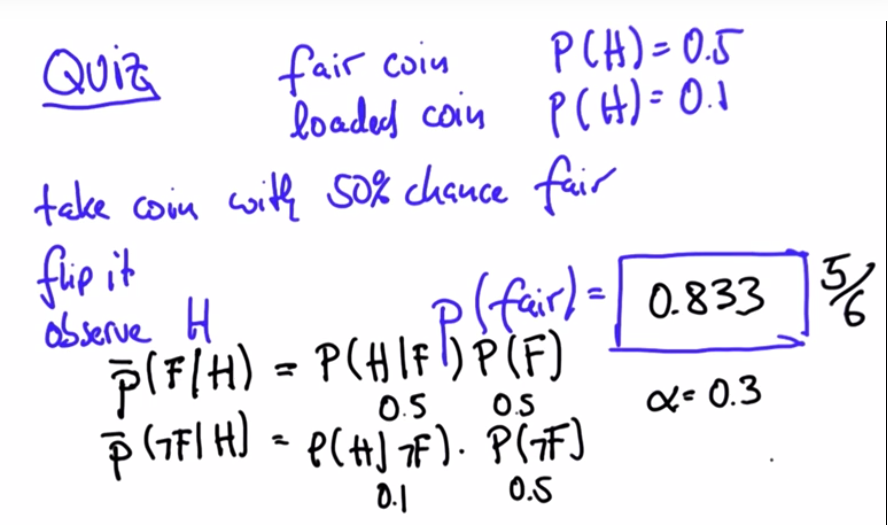 Quiz fair coin P(H) = 0.5
loaded coin P(H) = 0.1
take coin with 50% chance fair
flip it
observe H P(fair) = 0.833 5/6
p̄(F|H) = P(H|F) P(F)
0.5 0.5 α = 0.3
p̄(¬F|H) = P(H|¬F) · P(¬F)
0.1 0.5